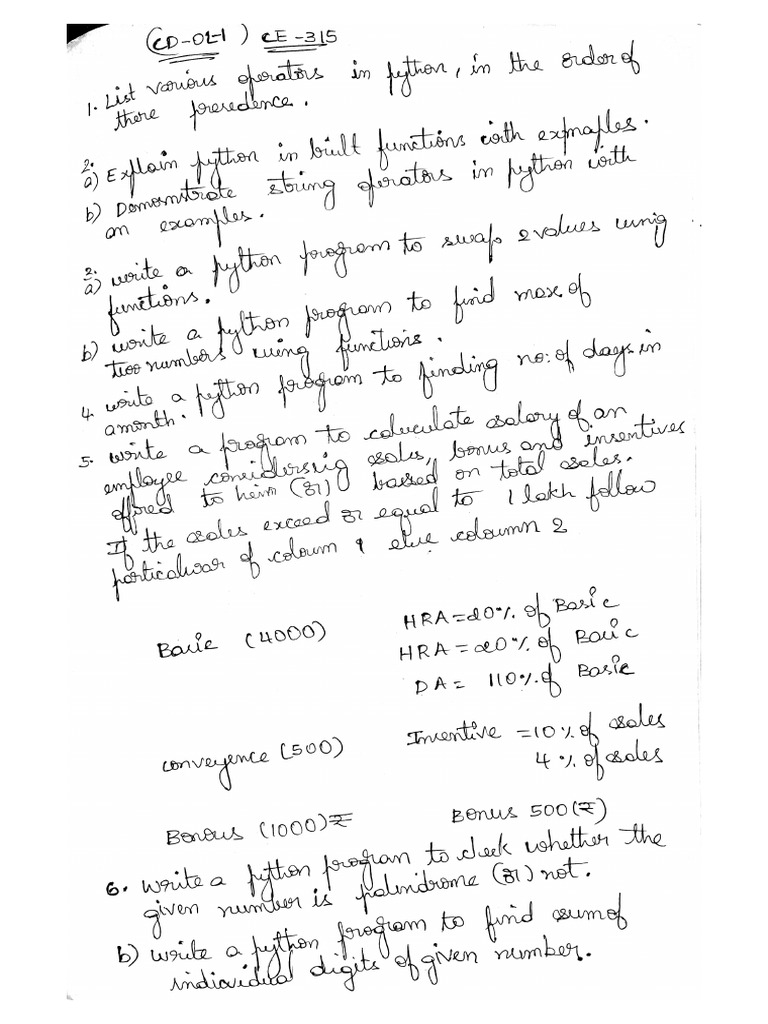 (CD-02-1) CE-315
1. List various operators in python, in the order of
there presedence.
2.
a) Explain python in built functions with expmaples.
b) Demomstrate string operators in python with
an examples.
2.
a) write a python program to swap 2 values using
functions.
b) write a python program to find max of
two numbers using functions.
4. write a python program to finding no: of days in
a month.
5. write a program to calculate salary of an
employee considering sales, bonus and insentives
offred to him (or) based on total sales.
If the sales exceed or equal to 1 lakh follow
particalwar of coloum 1 else coloumn 2
HRA = 20% of Basic
Basic (4000)
HRA = 20% of Basic
DA = 110% of Basic
Insentive = 10% of sales
conveyence (500)
4 % of sales
Bonous (1000) ₹
Bonus 500 (₹)
6. write a python program to check whether the
given number is palindrome (or) not.
b) write a python program to find sum of
individual digits of given number.